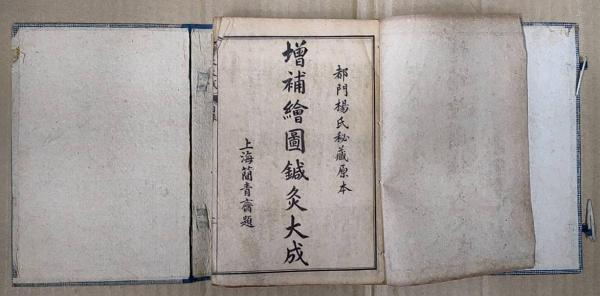 都門楊氏秘藏原本
增補繪圖鍼灸大成
上海簡青齋題